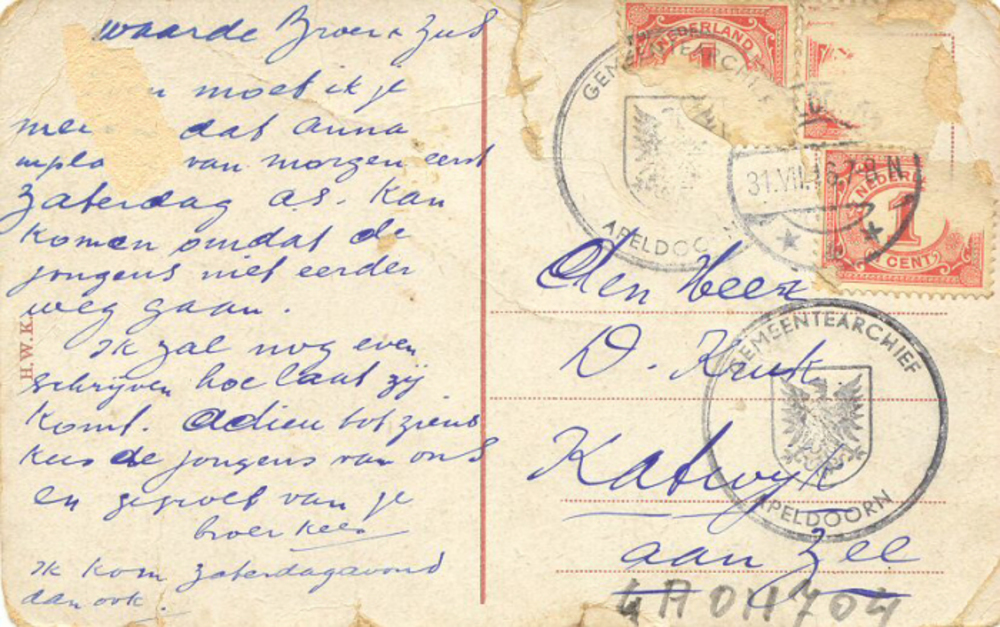 waarde Broer & Zus
moet ik je
me dat anna
inpla van morgen eerst
zaterdag a.s. kan
komen omdat de
jongens niet eerder
weg gaan.
ik zal nog even
schrijven hoe laat zij
komt. adieu tot ziens
kus de jongens van ons
en gegroet van je
broer Kees
ik kom zaterdagavond
dan ook.
H.W.K.
NEDERLAND
1
GEMEENTEARCHIEF
APELDOORN
31.VII.16.7-8.N
NEDER
1
CENT
Den Heer
D. Kruk
Katwijk
aan Zee
GEMEENTEARCHIEF
APELDOORN